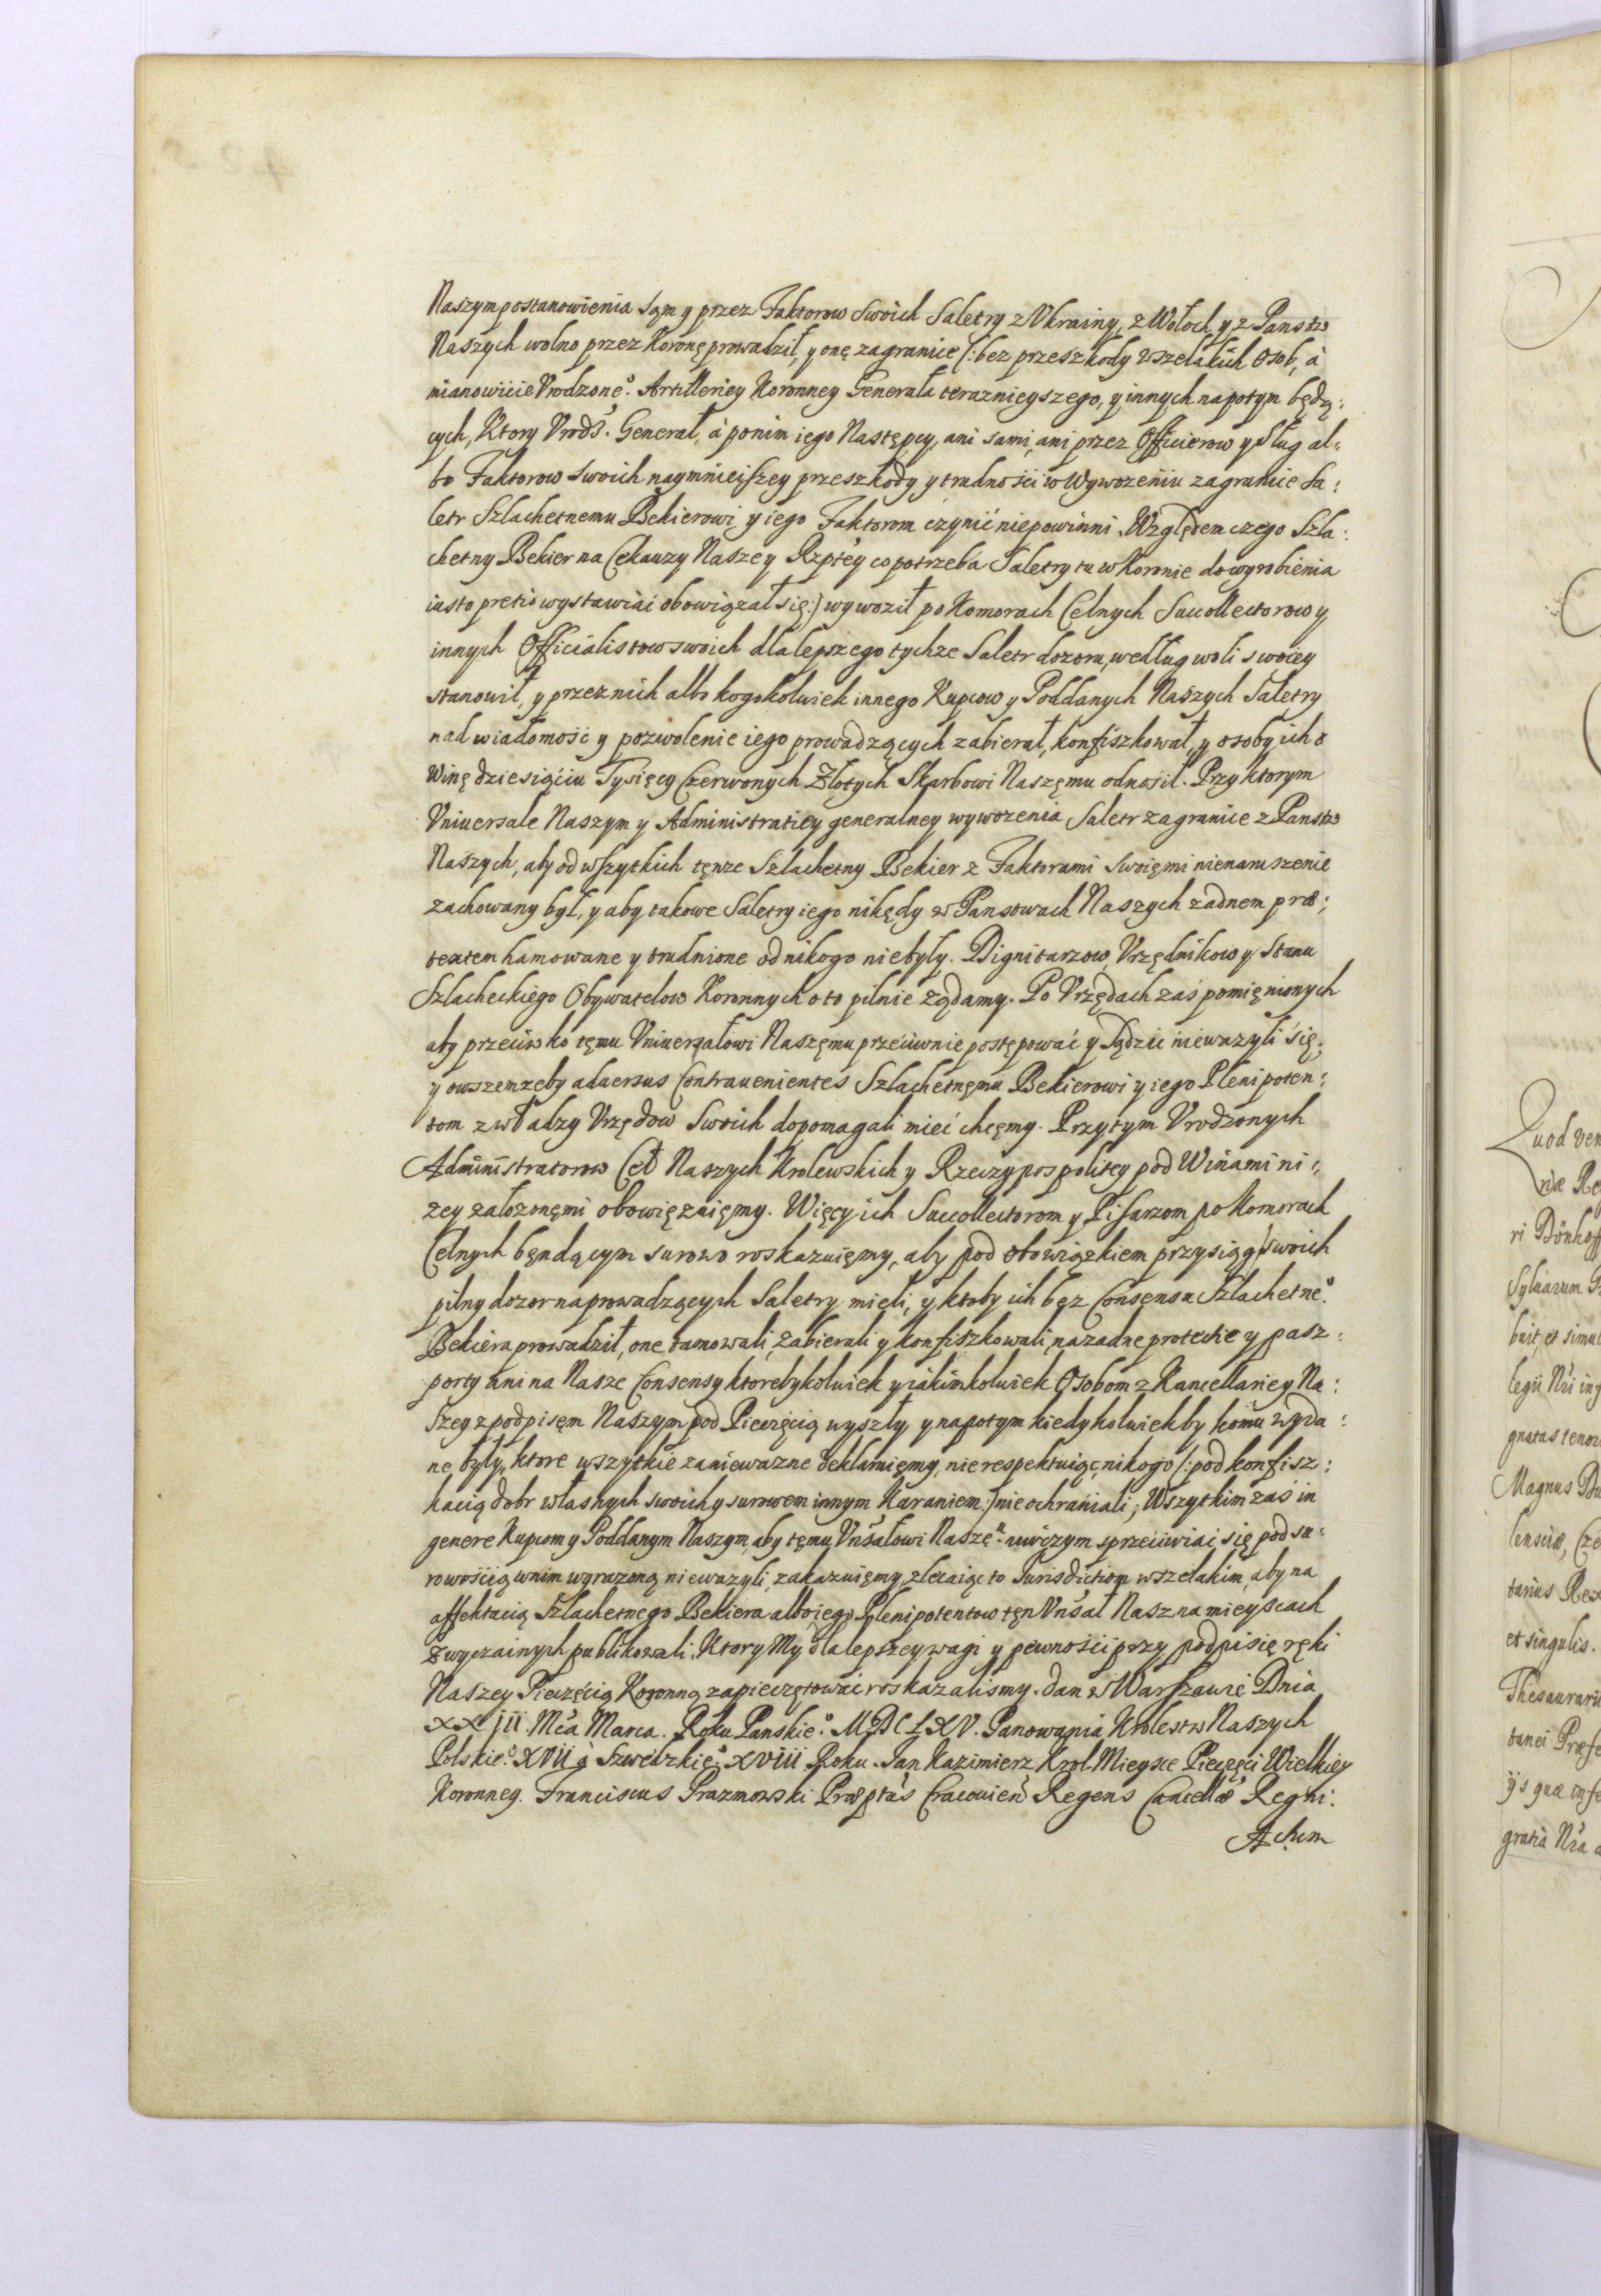 Naszym postanowienia sąm y przez Faktorow swoich Saletry z Vkrainy, z Wołoch, y z Panstw
Naszych wolno przez Koronę prowadził, y onę zagranice (: bez przeszkody wszelakich Osob, à
mianowicie Vrodzone°. Artilleriey Koronney Generała teraznieyszego, y innych napotym będą:
cych, Ktory Vrodź. Generał, à ponim iego Następcy, ani sami, ani przez Officierow y Sług al:
bo Faktorow swoich naymnieiszey przeszkody y trudności w Wywozeniu zagranice Sa:
letr Szlachetnemu Bekierowi y iego Faktorom czynić niepowinni, Względem czego Szla:
chetny Bekier na Cekauzy Naszey Rzptey co potrzeba Saletry tu w Koronie do wyrobienia
iusto pretio wystawiać obowiązał się:) wywoził po Komorach Celnych Succollectorow y
innych Officialistow swoich dla lepszego tychze Saletr dozoru, według woli swoiey
stanowił, y przez nich albo kogokolwiek innego Kupcow y Poddanych Naszych Saletry
nad wiadomość y pozwolenie iego prowadzących zabierał, konfiszkował, y osoby ich o
Winę dziesiąciu Tysięcy Czerwonych Złotych Skarbowi Naszęmu odnosił. Przy ktorym
Vniuersale Naszym y Administratiey generalney wywozenia Saletr zagranice z Panstw
Naszych, aby od wszytkich tęnze Szlachetny Bekier z Faktorami swoięmi nienaruszenie
zachowany był, y aby takowe Saletry iego nikędy w Panstwach Naszych zadnem præ:
textem hamowane y trudnione od nikogo niebyły. Dignitarzow, Vrzędnikow y Stanu
Szlacheckiego Obywatelow Koronnych oto pilnie ządamy. Po Vrzędach zaś pomięnionych
aby przeciwko tęmu Vniuersałowi Naszęmu przeciwnie postępować y Sądzić niewazyli się,
y owszem zeby aduersus Contrauenientes Szlachetnęmu Bekierowi y iego Plenipoten:
tom z władzy Vrzędow Swoich dopomagali mieć chcęmy. Przytym Vrodzonych
Administratorow Ceł Naszych Krolewskich y Rzeczypospolitey pod Winami ni:
zey załozonęmi obowięzuięmy. Więcy ich Succollectorom y Pisarzom po Komorach
Celnych bęndącym surowo roskazuięmy, aby pod obowiązkiem przysięgi swoich
pilny dozor na prowadzących Saletry mięli, y ktoby ich bęz Consensu Szlachetne°.
Bekiera prowadził, one tamowali, zabierali y konfiszkowali, nazadne protectie y pasz:
porty ani na Nasze Consensy ktorebykolwiek y iakimkolwiek Osobom z Kancellariey Na:
szey z podpisęm Naszym pod Pieczęcią wyszły, y napotym kiedykolwiekby komu wyda:
ne były, ktore wszytkie zaniewazne deklaruięmy, nierespektuiąc nikogo (: pod konfisz:
kacią dobr własnych swoich y surowem innym Karaniem:) nie ochraniali; Wszytkim zaś in
genere Kupcom y Poddanym Naszym, aby tęmu Vnśałowi Naszę° nuwczym sprzeciwiać się pod su:
rowością wnim wyrazoną niewazyli, zakazuięmy, zlecaiąc to Iurisdictiom wszelakim, aby na
affektacią Szlachetnego Bekiera albo iego Plenipotentow tęn Vnśał Nasz na mieyscach
Zwyczainych publikowali. Ktory My dla lepszey wagi y pewności przy podpisię ręki
Naszey Pieczęcią Koronną zapieczętować roskazalismy. Dan w Warszawie Dnia
XXIII. Mca Marca. Roku Panskie°. MDCLXV. Panowania Krolestw Naszych
Polskie°. XVII à Szwedzkie°. XVIII Roku. Jan Kazimierz Krol. Mieysce Pieczęci Wielkiey
Koronney. Franciscus Prazmowski Præptús Cracouień Regens Cancellæ Regni.

Quod ven
ri Dönhoff
Magnus Du
et singulis.